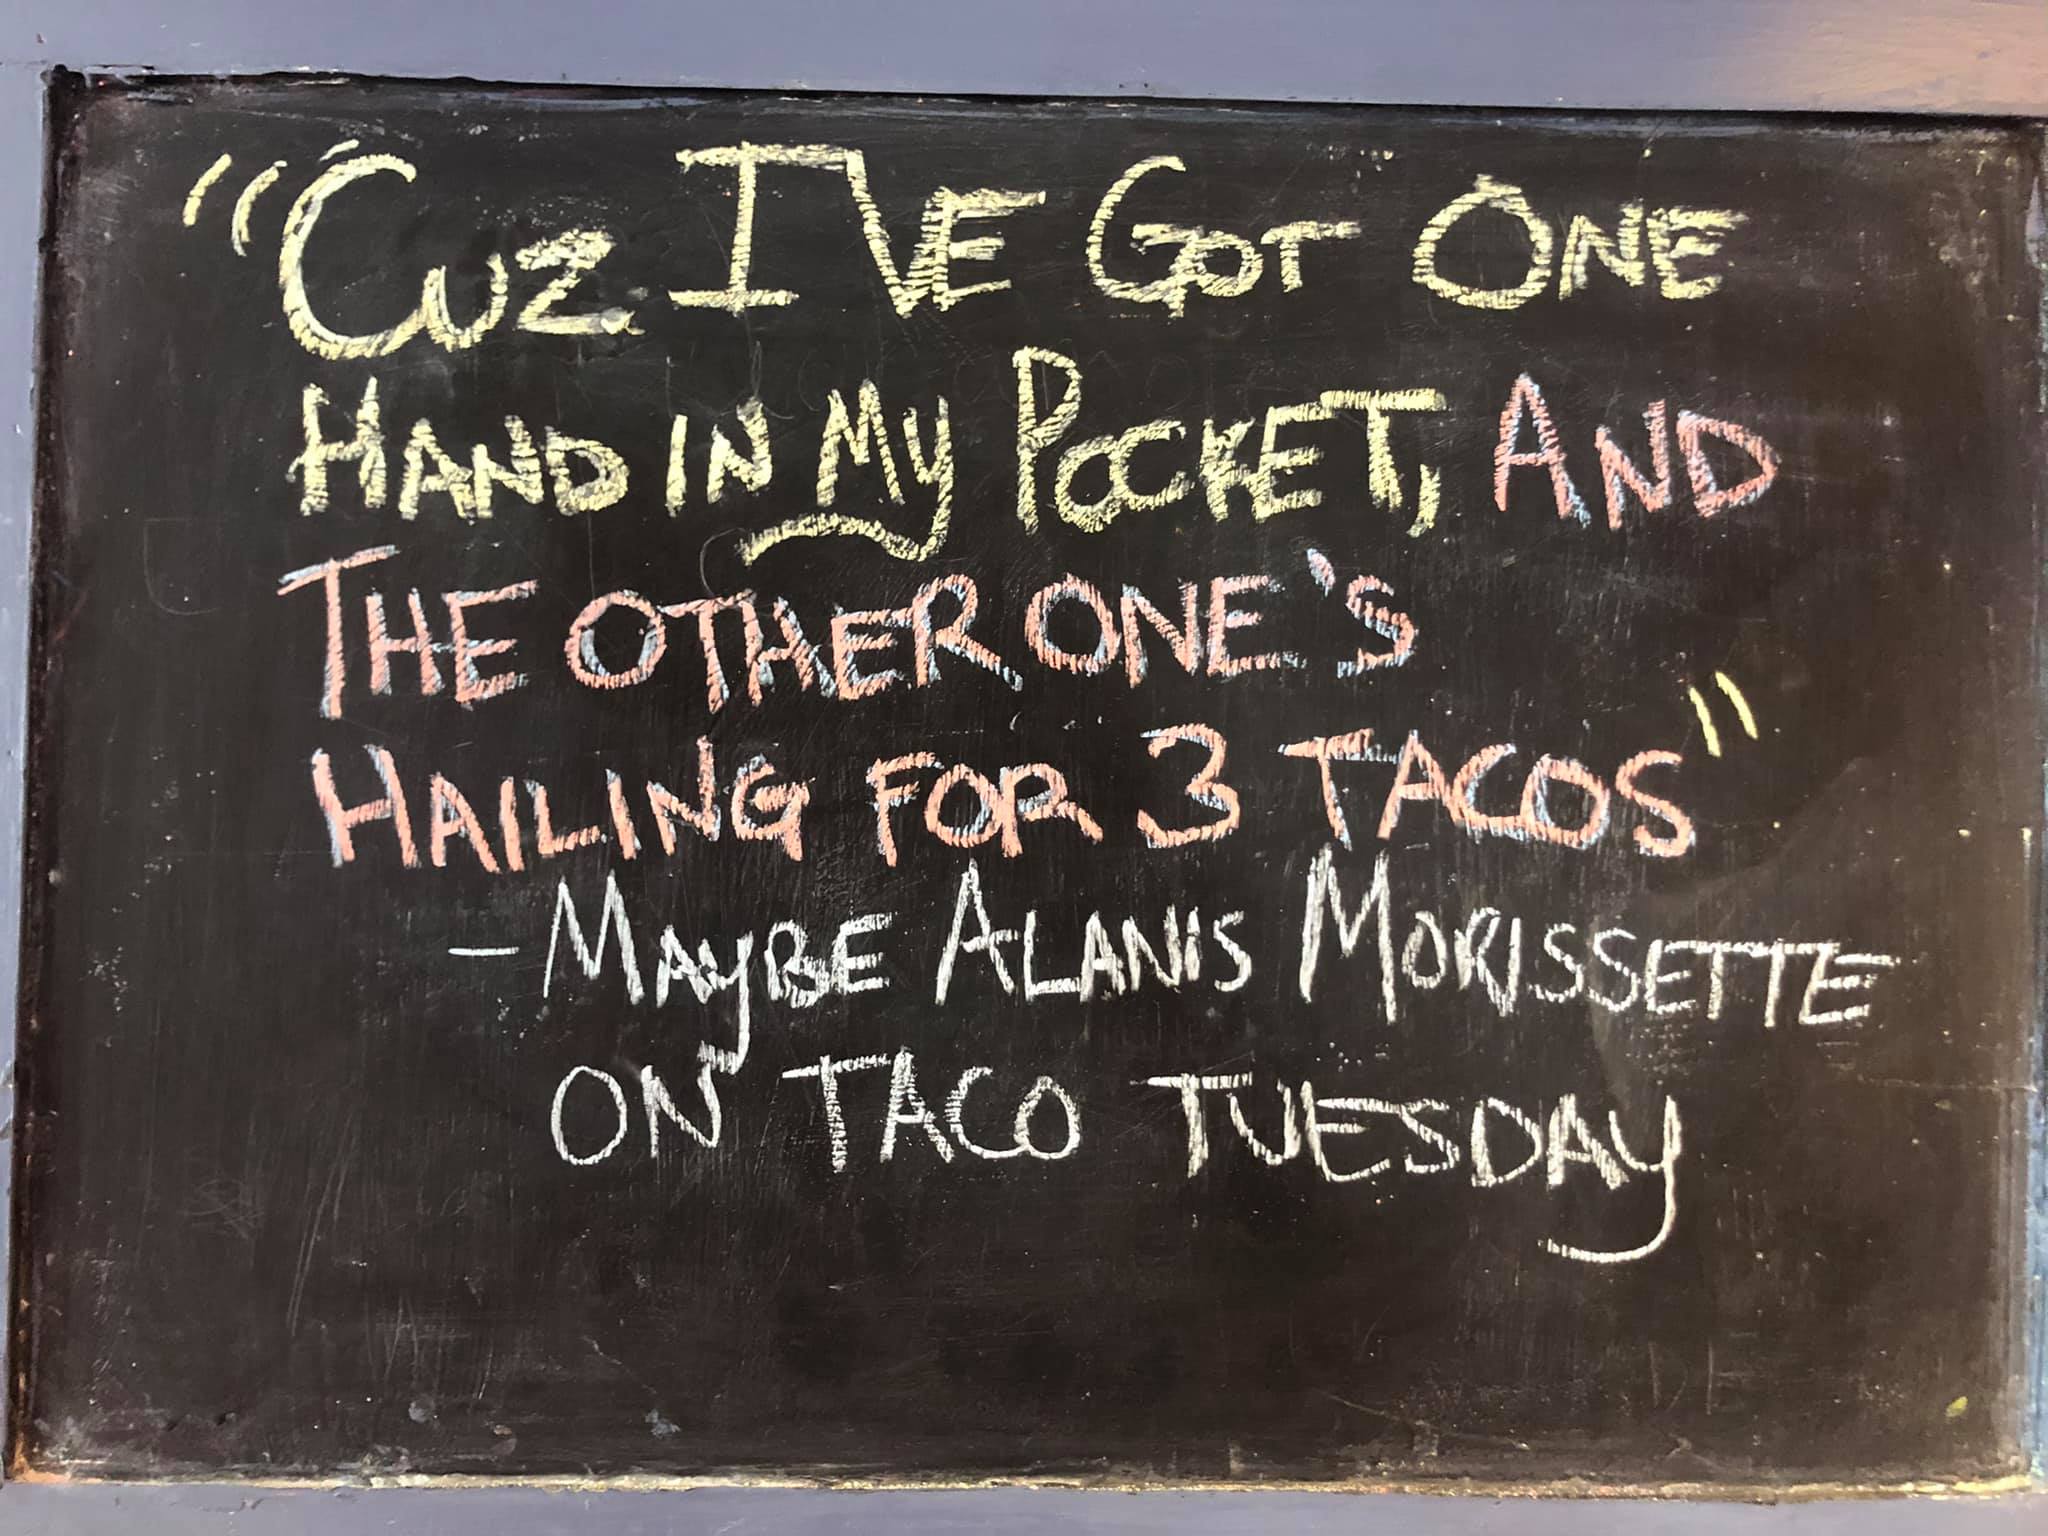 "Cuz I've Got One
Hand in my Pocket, And
The other one's
Hailing for 3 Tacos"
- Maybe Alanis Morissette
on Taco Tuesday